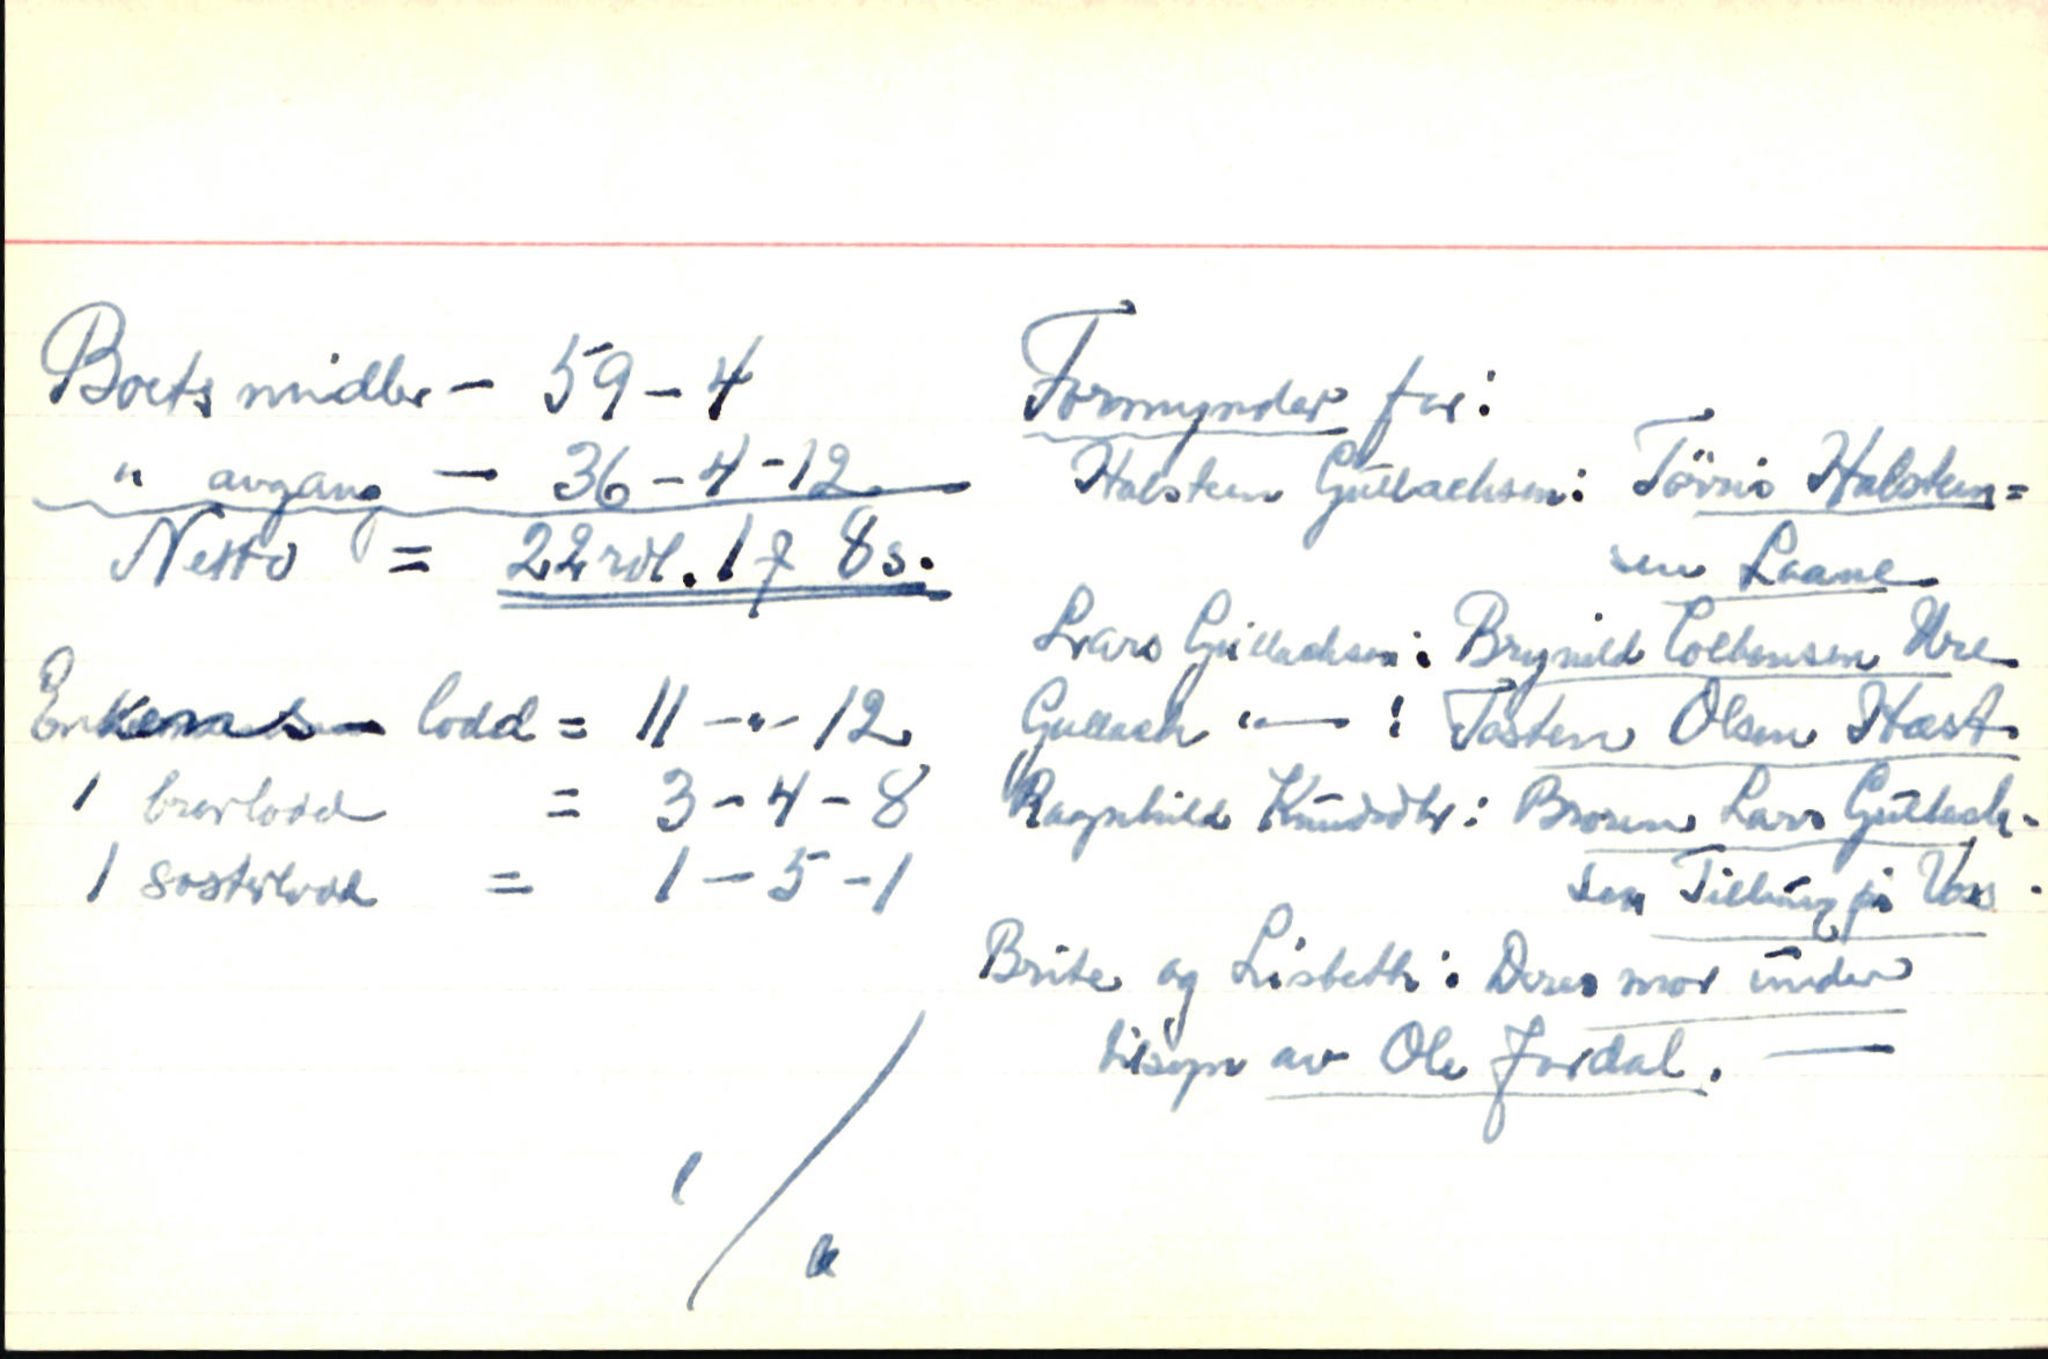 Boets midler - 59 - 4
" avgang - 36 - 4 - 12
Netto = 22 rdl. 1 f 8 s.
Enkens lodd = 11 - " - 12
1 brorlodd = 3 - 4 - 8
1 søsterlodd = 1 - 5 - 1
Formynder for:
Halsten Gullachsen: Halsten=
sen Laane
Lars Gullachsen: Brynild Colbensen Ure
Gullach " — : Tosten Olsen Hæst
Ragnhild Knudsdtr: Broren Lars Gullach-
sen Tillung på Voss.
Brite og Lisbeth: Deres mor under
tilsyn av Ole Jordal. —